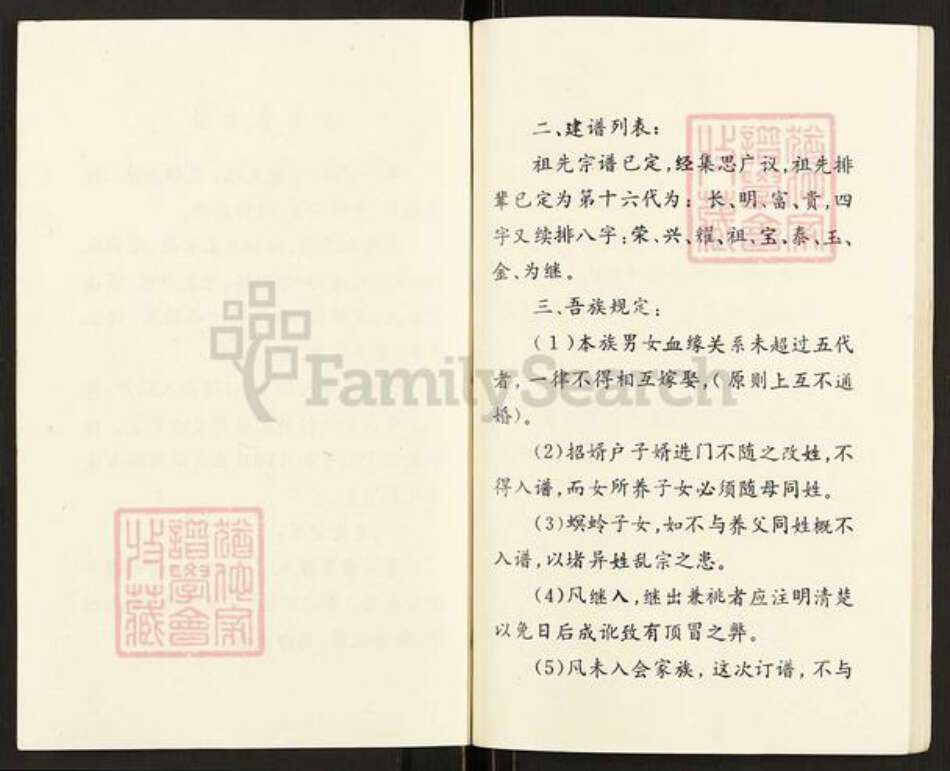 二、建谱列表:
祖先宗谱已定,经集思广议,祖先排
辈已定为第十六代为:长、明、富、贵,四
字又续排八字:荣、兴、耀、祖、宝、泰、玉、
金、为继。
三、吾族规定:
(1)本族男女血缘关系未超过五代
者,一律不得相互嫁娶,(原则上互不通
婚)。
(2)招婿户子婿进门不随之改姓,不
得入谱,而女所养子女必须随母同姓。
(3)螟蛉子女,如不与养父同姓概不
入谱,以堵异姓乱宗之患。
(4)风继入,继出兼祧者应注明清楚
以免日后成讹致有顶冒之弊。
(5)风未入会家族,这次订谱,不与
FamilySearch
譜學會
收藏
譜學會
收藏